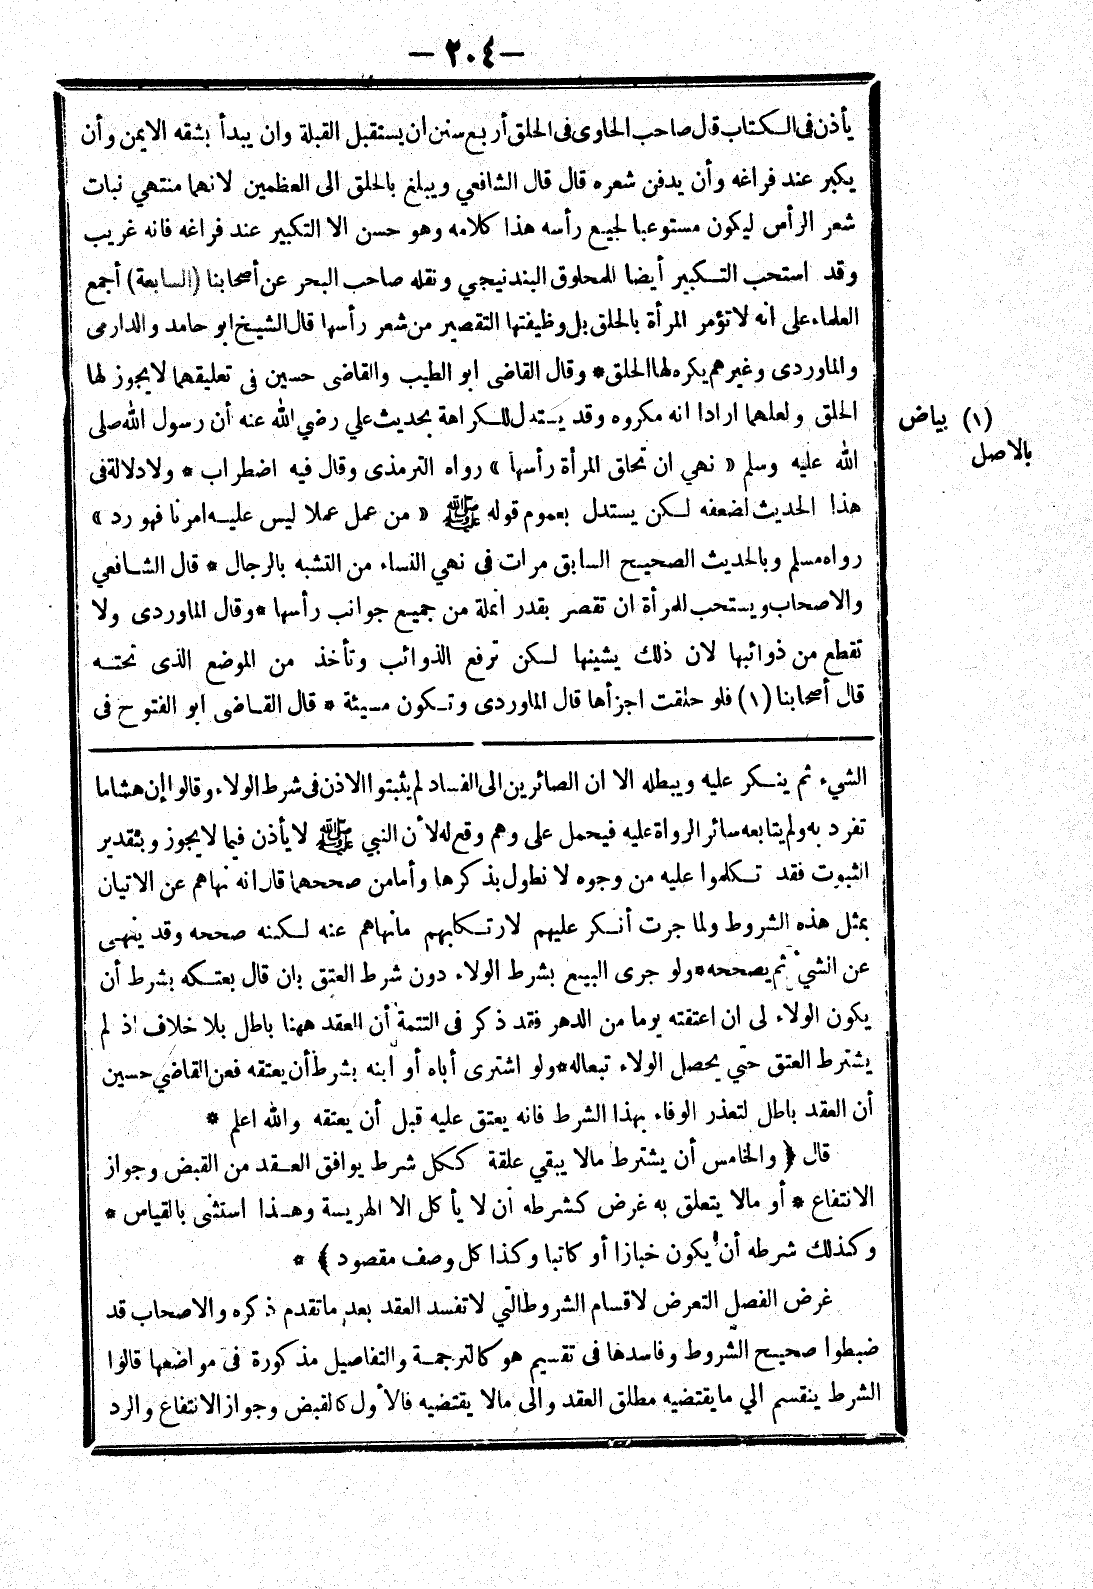 — ٢٠٤ —
يأذن في الكتاب قال صاحب الحاوى في الحلق أربع سنن ان يستقبل القبلة وان يبدأ بشقه الايمن وأن
يكبر عند فراغه وأن يدفن شعره قال قال الشافعي ويبلغ بالحلق الى العظمين لانهما منتهي نبات
شعر الرأس ليكون مستوعبا لجميع رأسه هذا كلامه وهو حسن الا التكبير عند فراغه فانه غريب
وقد استحب التكبير أيضا للمحلوق البندنيجي ونقله صاحب البحر عن أصحابنا (السابعة) أجمع
العلماء على انه لا تؤمر المرأة بالحلق بل وظيفتها التقصير من شعر رأسها قال الشيخ ابو حامد والدارمى
والماوردى وغيرهم يكره لها الحلق * وقال القاضى ابو الطيب والقاضى حسين فى تعليقهما لا يجوز لها
الحلق ولعلهما ارادا انه مكروه وقد يستدل للكراهة بحديث علي رضي الله عنه أن رسول الله صلى
الله عليه وسلم « نهي ان تحلق المرأة رأسها » رواه الترمذى وقال فيه اضطراب * ولا دلالة فى
هذا الحديث لضعفه لكن يستدل بعموم قوله ﷺ « من عمل عملا ليس عليه امرنا فهو رد »
رواه مسلم وبالحديث الصحيح السابق مرات فى نهي النساء من التشبه بالرجال * قال الشافعي
والاصحاب ويستحب للمرأة ان تقصر بقدر انملة من جميع جوانب رأسها * وقال الماوردى ولا
تقطع من ذوائبها لان ذلك يشينها لكن ترفع الذوائب وتأخذ من الموضع الذى تحته
قال أصحابنا (١) فلو حلقت اجزأها قال الماوردى وتكون مسيئة * قال القاضى ابو الفتوح فى
(١) بياض
بالاصل
الشيء ثم ينكر عليه ويبطله الا ان الصائرين الى الفساد لم يثبتوا الاذن فى شرط الولاء وقالوا إن هشاما
تفرد به ولم يتابعه سائر الرواة عليه فيحمل على وهم وقع له لأن النبي ﷺ لا يأذن فيما لا يجوز وبتقدير
الثبوت فقد تكلموا عليه من وجوه لا نطول بذكرها وأما من صححهما قال انه نهاهم عن الاتيان
بمثل هذه الشروط ولما جرت أنكر عليهم لارتكابهم ما نهاهم عنه لكنه صححه وقد ينهى
عن الشيء ثم يصححه * ولو جرى البيع بشرط الولاء دون شرط العتق بان قال بعتكه بشرط أن
يكون الولاء لى ان اعتقته يوما من الدهر فقد ذكر فى التتمة أن العقد ههنا باطل بلا خلاف اذ لم
يشترط العتق حتي يحصل الولاء تبعا له * ولو اشترى أباه أو ابنه بشرط أن يعتقه فعن القاضي حسين
أن العقد باطل لتعذر الوفاء بهذا الشرط فانه يعتق عليه قبل أن يعتقه والله اعلم *
قال ﴿ والخامس أن يشترط مالا يبقي علقة ككل شرط يوافق العقد من القبض وجواز
الانتفاع * أو مالا يتعلق به غرض كشرطه ان لا يأكل الا الهريسة وهذا استثنى بالقياس *
وكذلك شرطه أن يكون خبازا أو كاتبا وكذا كل وصف مقصود ﴾ *
غرض الفصل التعرض لاقسام الشروط التي لا تفسد العقد بعد ما تقدم ذكره والاصحاب قد
ضبطوا صحيح الشروط وفاسدها فى تقسيم هو كالترجمة والتفاصيل مذكورة فى مواضعها قالوا
الشرط ينقسم الي ما يقتضيه مطلق العقد والى مالا يقتضيه فالأول كالقبض وجواز الانتفاع والرد